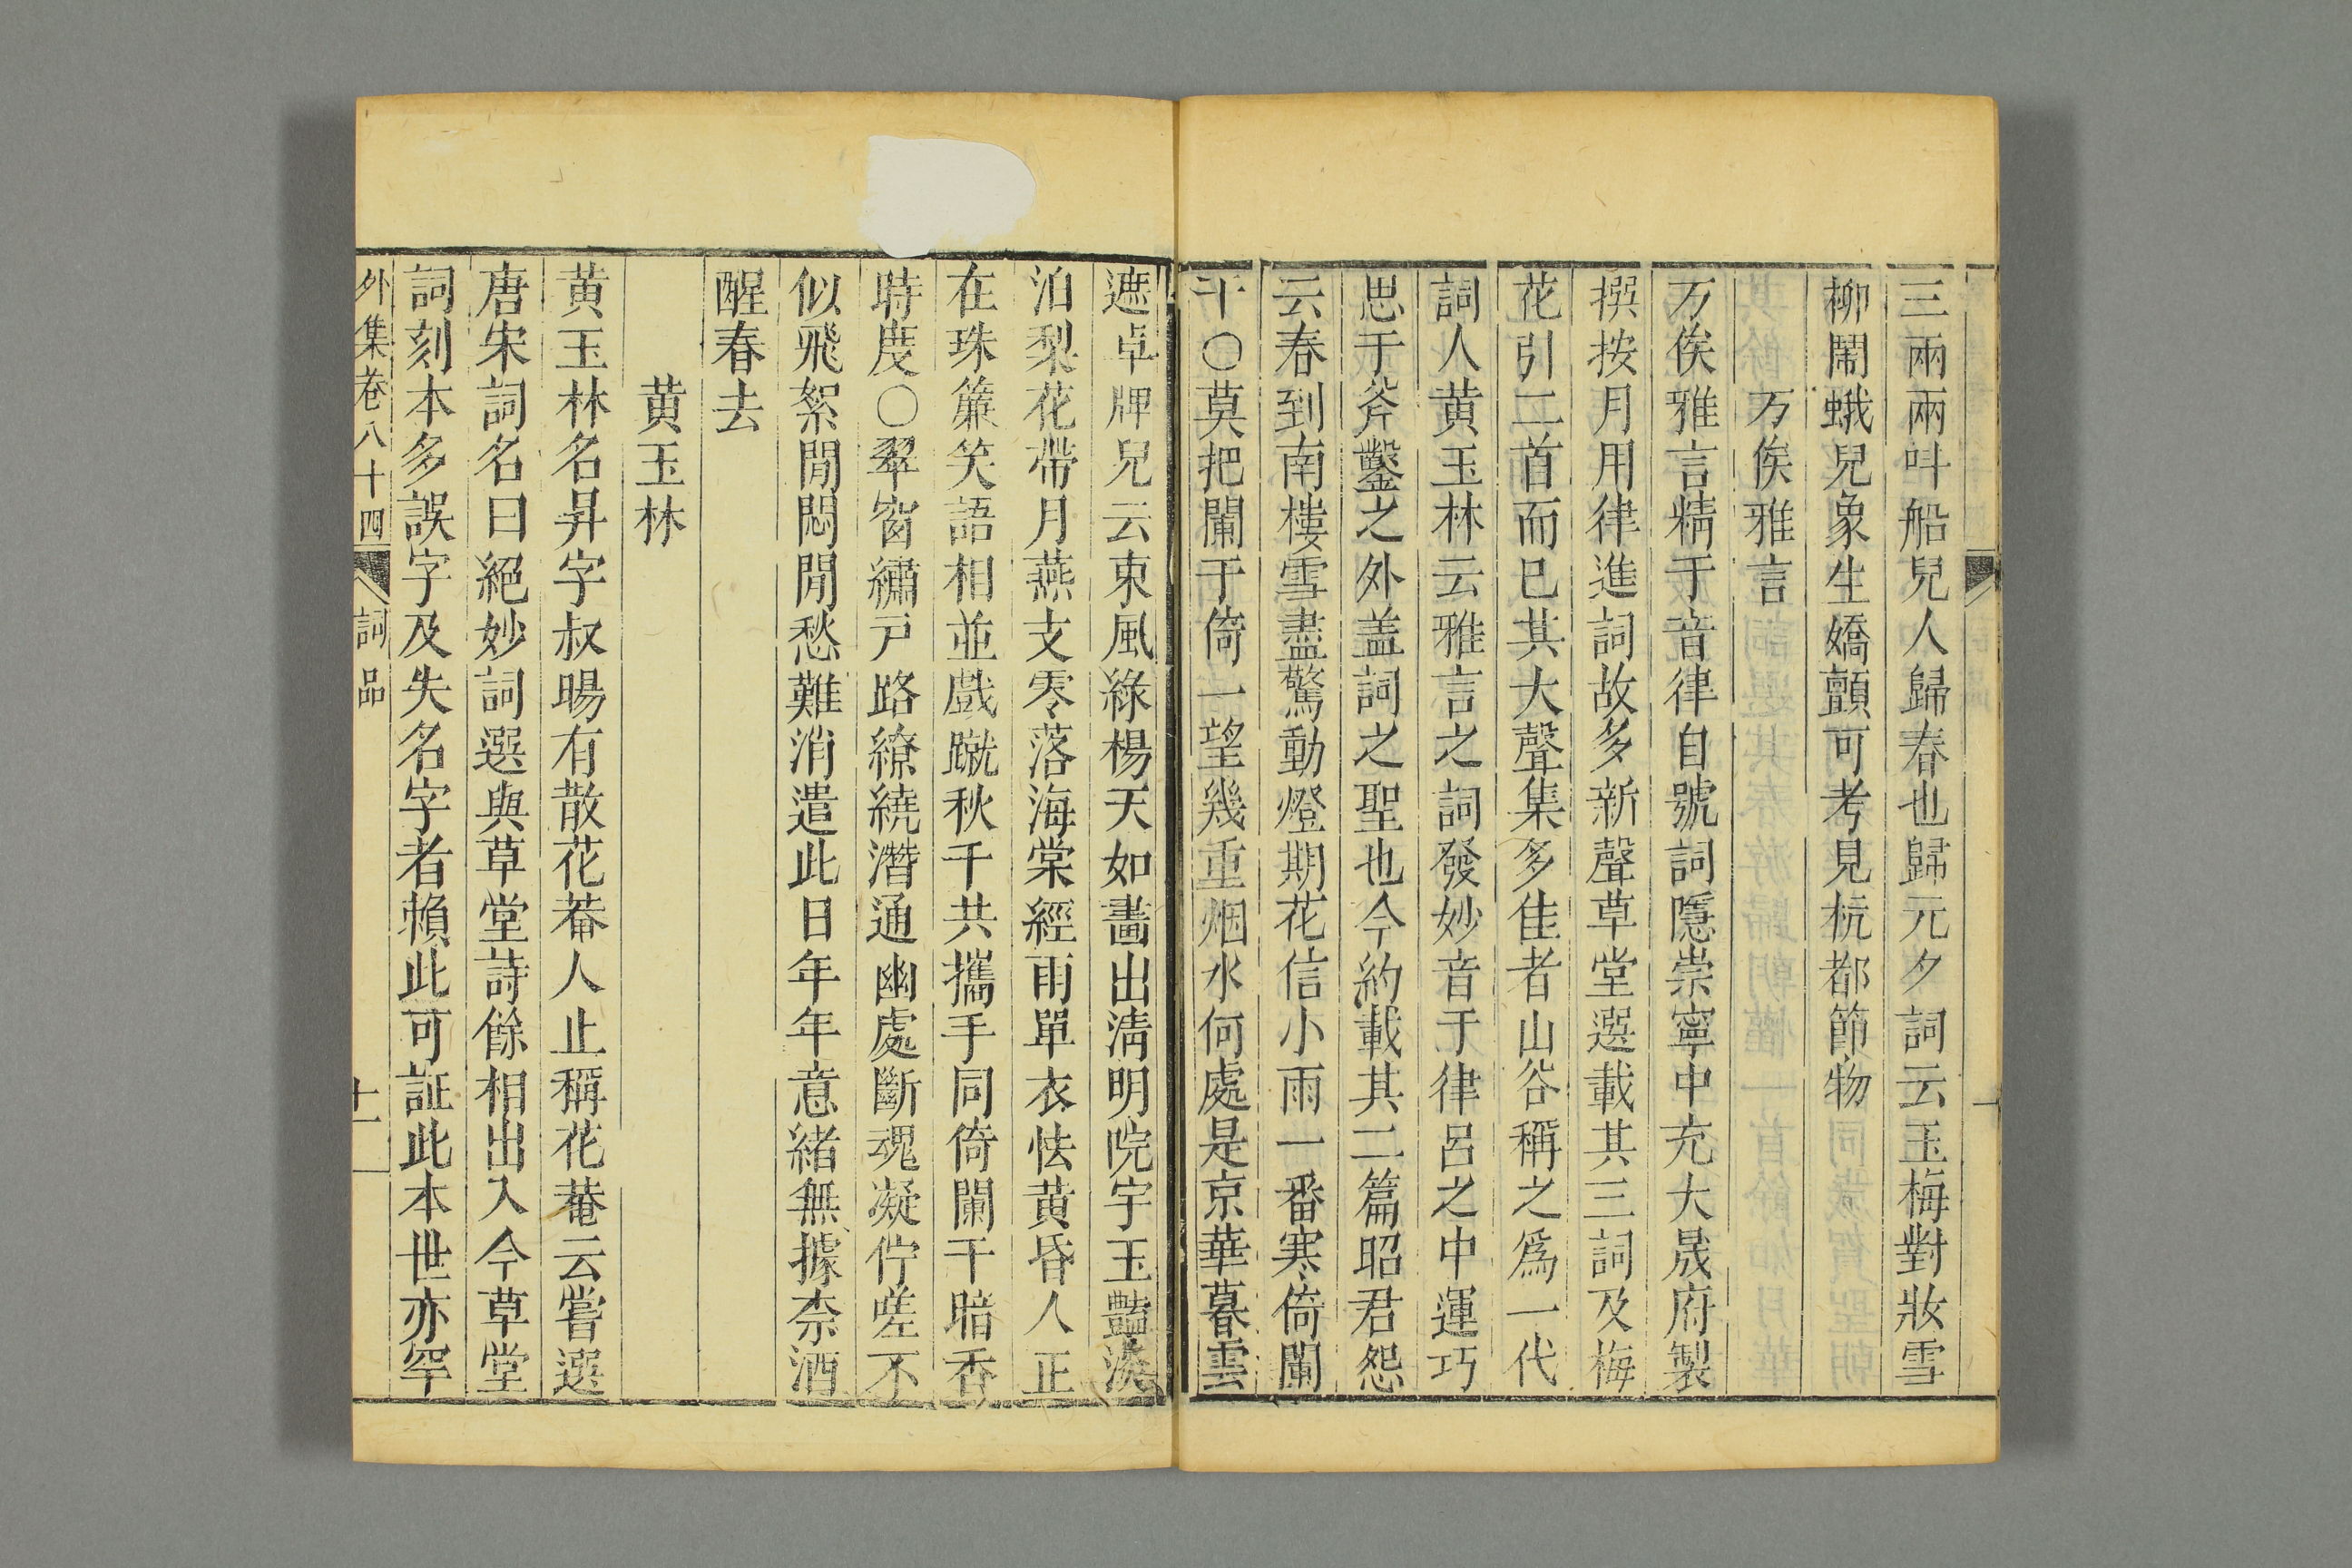 三兩兩呌船兒人歸春也歸元夕詞云玉梅對妝雪
柳鬧蛾兒象生嬌顫可考見杭都節物
万俟雅言
万俟雅言精于音律自號詞隱崇寧中充大晟府製
撰按月用律進詞故多新聲草堂選載其三詞及梅
花引二首而已其大聲集多佳者山谷稱之爲一代
詞人黄玉林云雅言之詞發妙音于律呂之中運巧
思于斧鑿之外盖詞之聖也今約載其二篇昭君怨
云春到南樓雪盡驚動燈期花信小雨一番寒倚闌
干○莫把闌干倚一望幾重烟水何處是京華暮雲
遮卓牌兒云東風綠楊天如畵出淸明院宇玉豔淡
泊梨花帶月燕支零落海棠經雨單衣怯黄昏人正
在珠簾笑語相並戲蹴秋千共攜手同倚闌干暗香
時度○翠窗繡戸路繚繞潛通幽處斷魂凝佇嗟不
似飛絮閒悶閒愁難消遣此日年年意緒無據奈酒
醒春去
黄玉林
黄玉林名昇字叔暘有散花菴人止稱花菴云嘗選
唐宋詞名曰絕妙詞選與草堂詩餘相出入今草堂
詞刻本多誤字及失名字者賴此可証此本世亦罕
外集卷八十四 詞品 十一